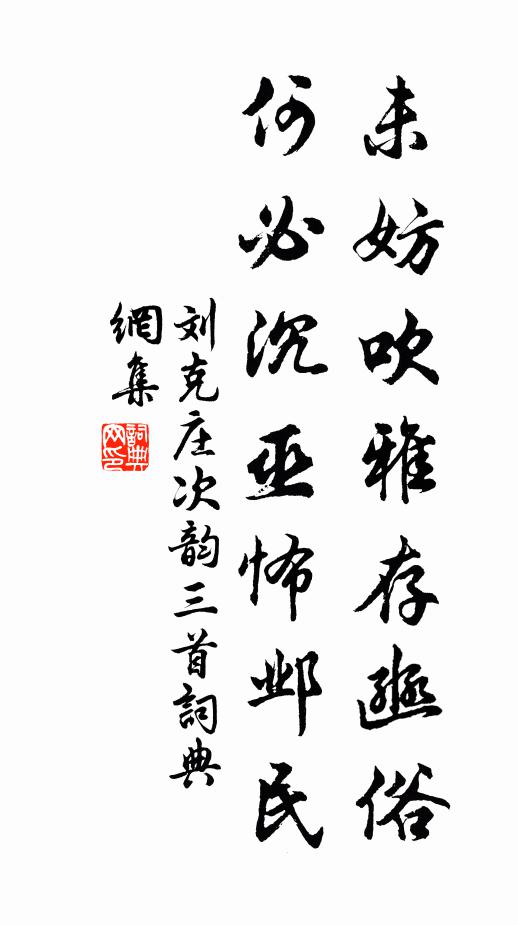 未妨吹雅存豳俗
何必沉巫怖邺民
刘克庄次韵三首詞典
網集
詞典
网印